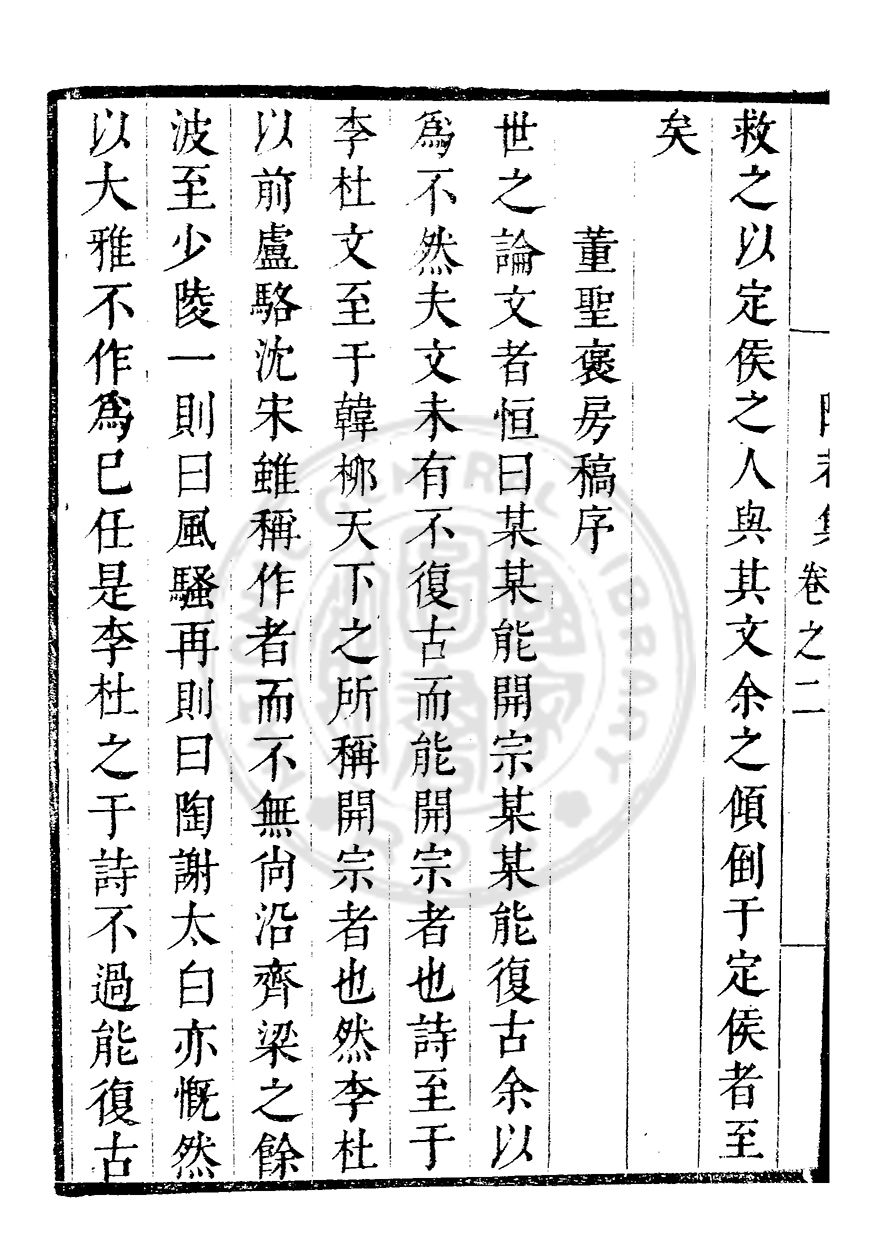 卷之二
救之以定侯之人與其文余之傾倒于定侯者至
矣
董聖褒房稿序
世之論文者恒曰某某能開宗某某能復古余以
爲不然夫文未有不復古而能開宗者也詩至于
李杜文至于韓柳天下之所稱開宗者也然李杜
以前盧駱沈宋雖稱作者而不無尚沿齊梁之餘
波至少陵一則曰風騷再則曰陶謝太白亦慨然
以大雅不作爲已任是李杜之于詩不過能復古
CENTRAL LIBRARY